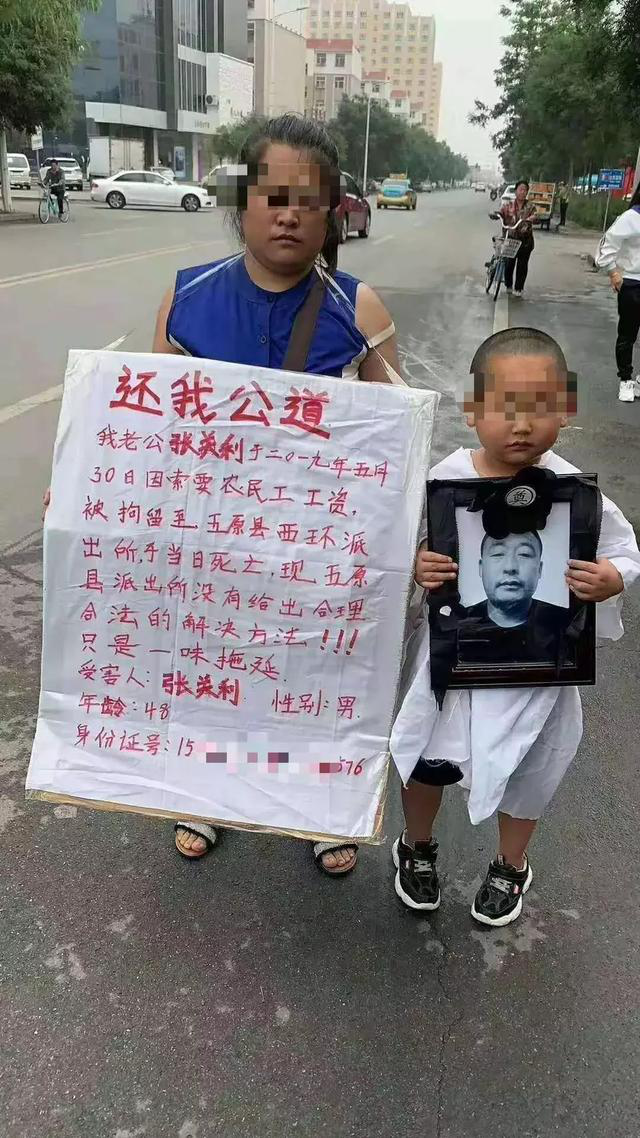 还我公道
我老公张美利于二〇一九年五月
30日因索要农民工工资,
被拘留至五原县西环派
出所,于当日死亡,现五原
县派出所没有给出合理
合法的解决方法!!!
只是一味拖延.
受害人:张美利
年龄:48 性别:男.
身份证号:15 576
奠